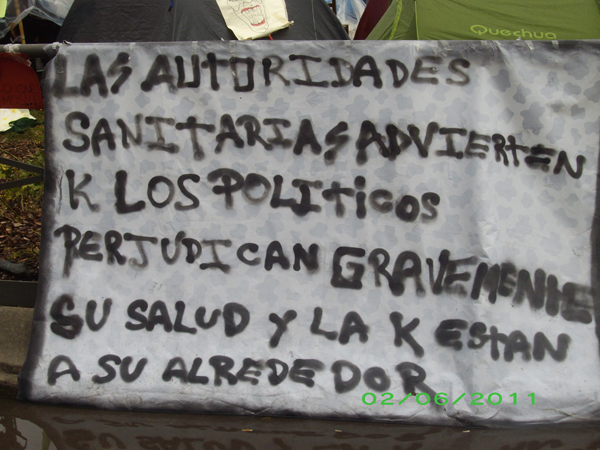 Quechua
LAS AUTORIDADES
SANITARIAS ADVIERTEN
K LOS POLITICOS
PERJUDICAN GRAVEMENTE
SU SALUD Y LA K ESTAN
A SU ALREDEDOR
02/06/2011